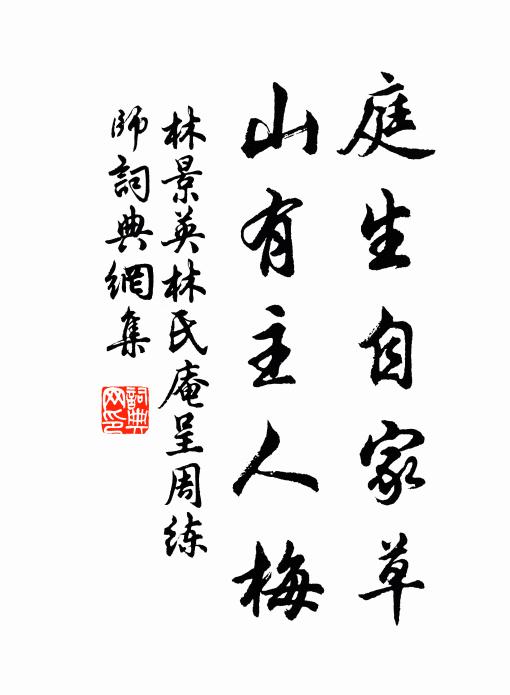 庭生自家草
山有主人梅
林景英林氏庵呈周练
師詞典網集
詞典
网印